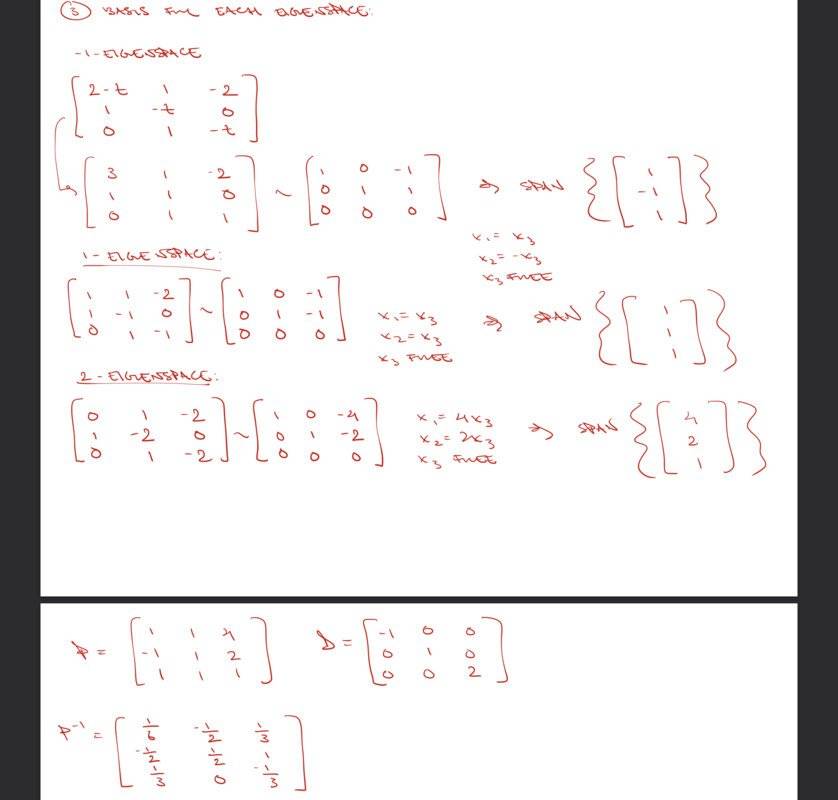 ③ BASIS FOR EACH EIGENSPACE:
-1-EIGENSPACE
[2-t 1 -2
1 -t 0
0 1 -t]
[3 1 -2
1 1 0
0 1 1] ~ [1 0 -1
0 1 1
0 0 0] ⇒ SPAN {[1
-1
1]}
x₁ = x₃
x₂ = -x₃
x₃ FREE
1-EIGENSPACE:
[1 1 -2
1 -1 0
0 1 -1] ~ [1 0 -1
0 1 -1
0 0 0]
x₁ = x₃
x₂ = x₃
x₃ FREE
⇒ SPAN {[1
1
1]}
2-EIGENSPACE:
[0 1 -2
1 -2 0
0 1 -2] ~ [1 0 -4
0 1 -2
0 0 0]
x₁ = 4x₃
x₂ = 2x₃
x₃ FREE
⇒ SPAN {[4
2
1]}
P = [1 1 4
-1 1 2
1 1 1]
D = [-1 0 0
0 1 0
0 0 2]
P⁻¹ = [1/6 -1/2 1/3
-1/2 1/2 1
1/3 0 -1/3]